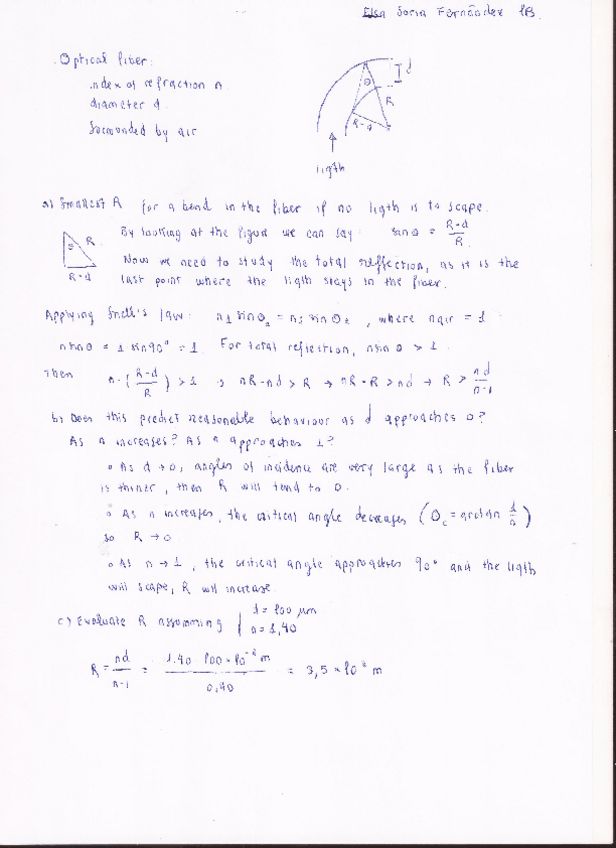 Elsa Soria Fernández 1B.
Optical fiber:
index of refraction n
diameter d
Surrounded by air
θ
d
R
R-d
ligth
a) Smallest R for a bend in the fiber if no ligth is to scape.
By looking at the figure we can say sinθ = (R-d)/R.
θ R
R-d
Now we need to study the total reflection, as it is the
last point where the ligth stays in the fiber.
Applying Snell's law: n1 sinθ1 = n2 sinθ2, where nair = 1
n sinθ = 1 sin90° = 1. For total reflection, n sinθ > 1.
Then n·((R-d)/R) > 1 → nR-nd > R → nR-R > nd → R > nd/(n-1)
b) Does this predict reasonable behaviour as d approaches 0?
As n increases? As n approaches 1?
o As d→0, angles of incidence are very large as the fiber
is thiner, then R will tend to 0.
o As n increases, the critical angle decreases (θc = arctan 1/n)
so R → 0
o As n → 1, the critical angle approaches 90° and the ligth
will scape, R will increase.
c) Evaluate R assumming d = 100 μm
n = 1,40
R = nd/(n-1) = 1.40 · 100 × 10⁻⁶ m / 0,40 = 3,5 × 10⁻⁴ m